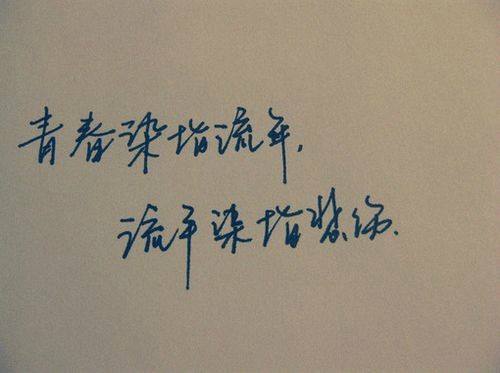 青春染指流年,
流年染指伤.